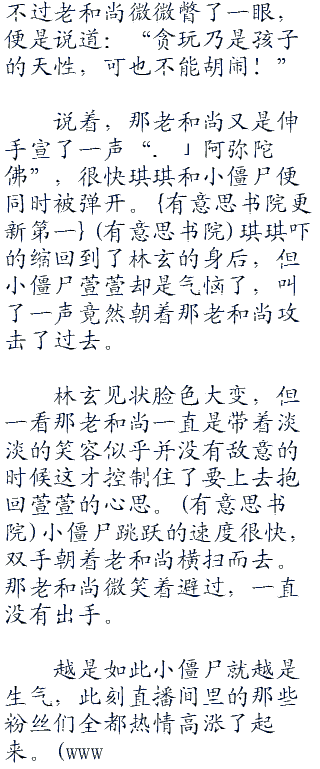 不过老和尚微微瞥了一眼，
便是说道：“贪玩乃是孩子
的天性，可也不能胡闹！”
说着，那老和尚又是伸
手宣了一声“．」阿弥陀
佛”，很快琪琪和小僵尸便
同时被弹开。{有意思书院更
新第一}(有意思书院)琪琪吓
的缩回到了林玄的身后，但
小僵尸萱萱却是气恼了，叫
了一声竟然朝着那老和尚攻
击了过去。
林玄见状脸色大变，但
一看那老和尚一直是带着淡
淡的笑容似乎并没有敌意的
时候这才控制住了要上去抱
回萱萱的心思。(有意思书
院)小僵尸跳跃的速度很快，
双手朝着老和尚横扫而去。
那老和尚微笑着避过，一直
没有出手。
越是如此小僵尸就越是
生气，此刻直播间里的那些
粉丝们全都热情高涨了起
来。(www